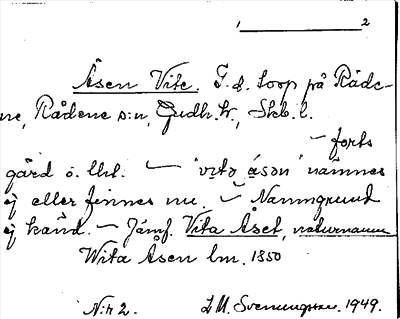 1 2
Åsen Vite. F.d. torp på Råde-
ne, Rådene s:n, Gudh. hr., Skb. l.
— forts
gård o. lht. — "vitə åsən" nämnes
ej eller finnes nu. — Namngrund
ej känd. — Jämf. Vita Åset, naturnamn
Wita Åsen lm. 1850
N:r 2. L.M. Svenungsson. 1949.